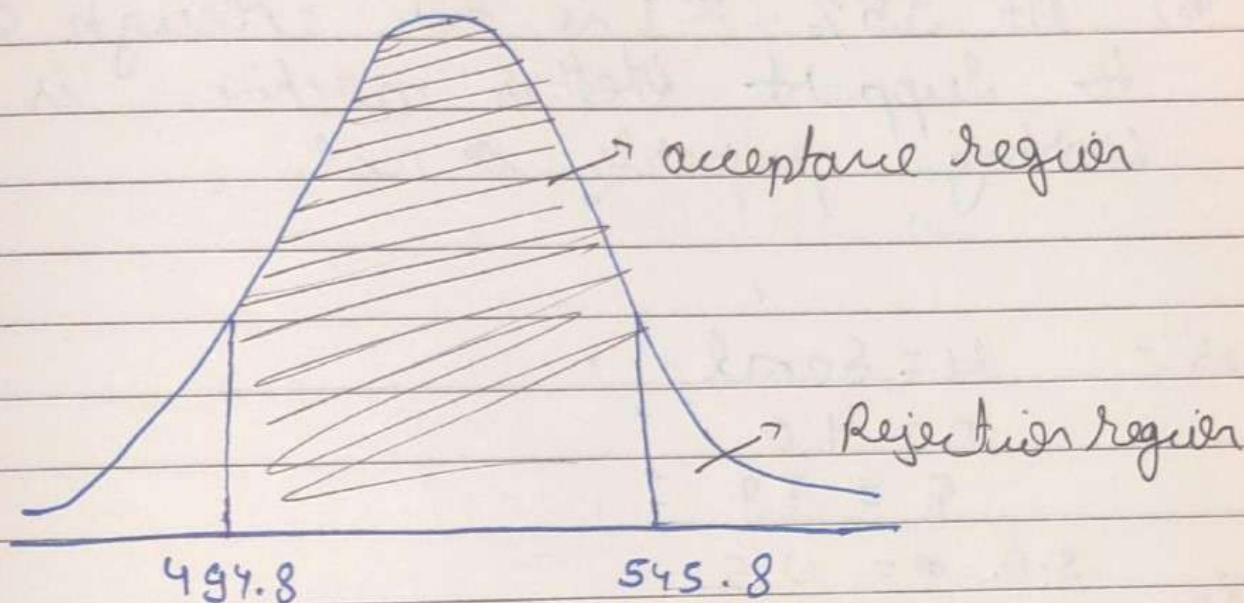 acceptance region
Rejection region
494.8 545.8